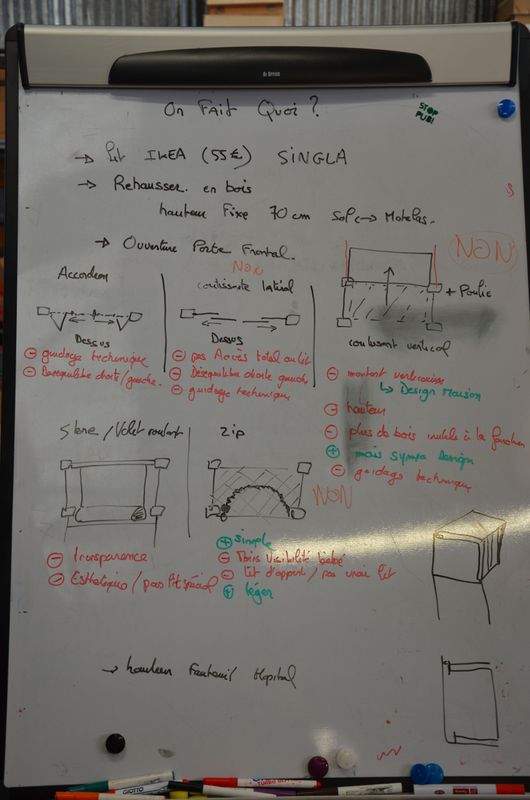 On Fait Quoi ?
STOP PUB!
→ lit IKEA (55€) SINGLA
→ Rehausser en bois
hauteur Fixe 70 cm Sol ↔ Matelas.
→ Ouverture Porte Frontal.
Accordeon
Dessus
⊖ guidage technique
⊖ Desequilibre droite/gauche.
NON
coulissante latéral
Dessus
⊖ pas Accès total au lit
⊖ Déséquilibre droite gauche
⊖ guidage technique
NON
+ Poulie
coulissant vertical
⊖ montant
↳ Design Maison
⊖ hauteur
⊖ plus de bois inutile à la
⊕ mais sympa Design
⊖ guidage technique
Store / Volet roulant
⊖ transparence
⊖ Esthétique / pas lit spécial
Zip
NON
⊕ simple
⊖ Moins visibilité bébé
⊖ lit d'appoint / pas vrai lit
⊕ léger
→ hauteur Fauteuil Hopital
GIOTTO